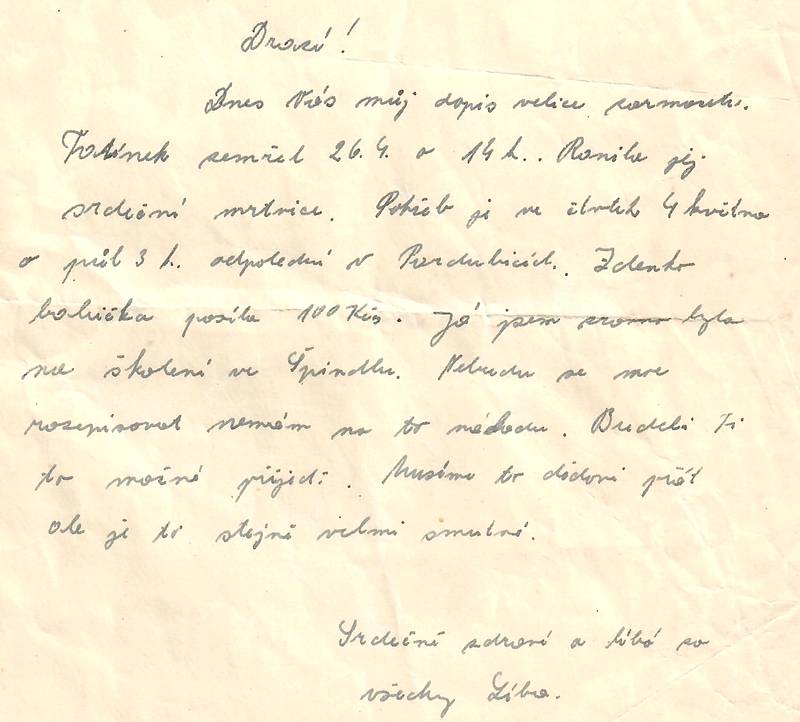 Drazí!
Dnes Vás můj dopis velice zarmoutí.
Tatínek zemřel 26.4. o 14 h.. Ranila jej
srdeční mrtvice. Pohřeb je ve čtvrtek 4 května
o půl 3 h. odpolední v Pardubicích. Zdenko
babička posílá 100 Kčs. Já jsem zrovna byla
na školení ve Špindlu. Nebudu se moc
rozepisovat nemám na to náladu. Budeli Ti
to možné přijeď. Musíme to dědovi přát
ale je to stejně velmi smutné.
Srdečně zdraví a líbá za
všechny Líba.